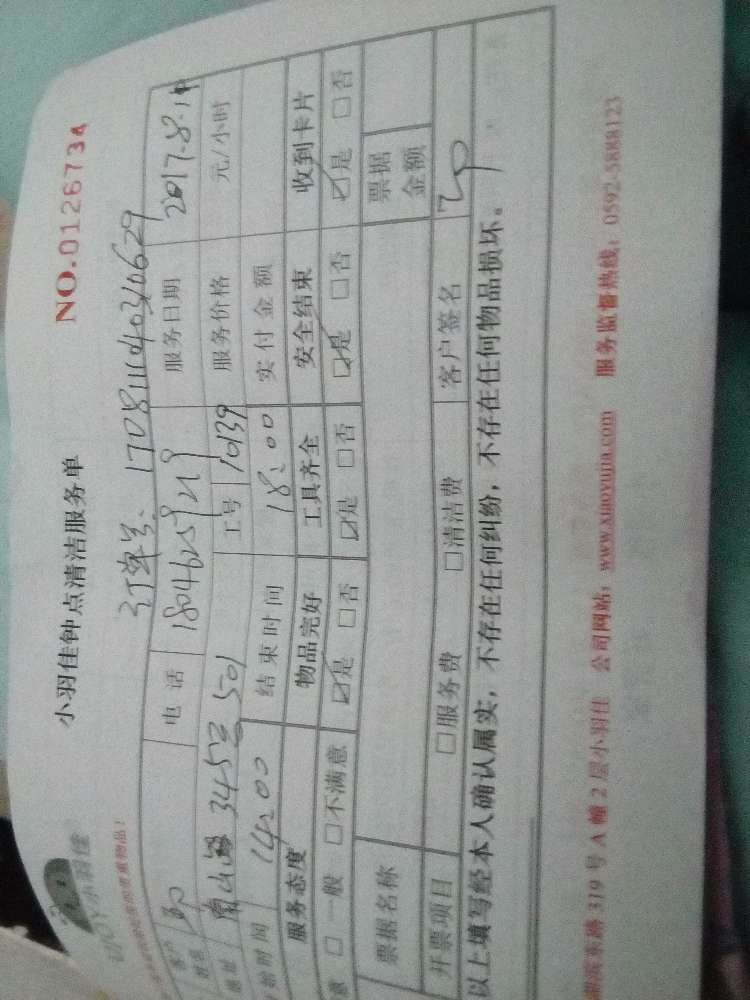 小羽佳钟点清洁服务单 NO.0126734
小羽佳
订单号、17081104030629
客户 电话 18046259219 服务日期 2017.8.11
姓名
地址 501 工号 10139 服务价格 元/小时
始时间 14:00 结束时间 18:00 实付金额
服务态度 物品完好 工具齐全 安全结束 收到卡片
意 □一般 □不满意 ☑是 □否 ☑是 □否 ☑是 □否 ☑是 □否
票据名称 票据金额
开票项目 □服务费 □清洁费 客户签名
以上填写经本人确认属实，不存在任何纠纷，不存在任何物品损坏。
滨东路319号A幢2层小羽佳 公司网站：www.xiaoyujia.com 服务监督热线：0592-5888123